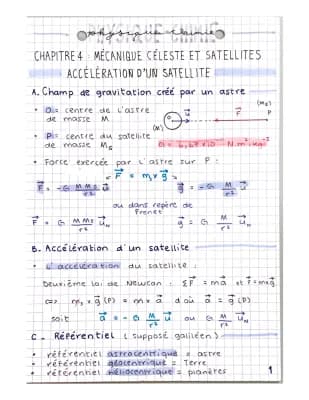 physique chimie
CHAPITRE 4 : MÉCANIQUE CÉLESTE ET SATELLITES
ACCÉLÉRATION D'UN SATELLITE
A. Champ de gravitation créé par un astre
• O = centre de l'astre
de masse M
• P = centre du satellite
de masse Ms
(M)
O
u
F
P
(Ms)
G = 6,67 x 10 N.m².kg⁻²
• Force exercée par l'astre sur P :
F = ms x g
F = - G M Ms / r² u
g = - G M / r² u
ou dans repère de
Frenet
F = G M Ms / r² uN
g = G M / r² uN
B. Accélération d'un satellite
• L'accélération du satellite :
Deuxième loi de Newton : ΣF = ma et F = mxg
<=> ms x g (P) = m x a d'où a = g (P)
soit a = - G M / r² u ou G M / r² uN
C - Référentiel (supposé galiléen)
• référentiel astrocentrique = astre
• référentiel géocentrique = Terre
• référentiel héliocentrique = planètes
1